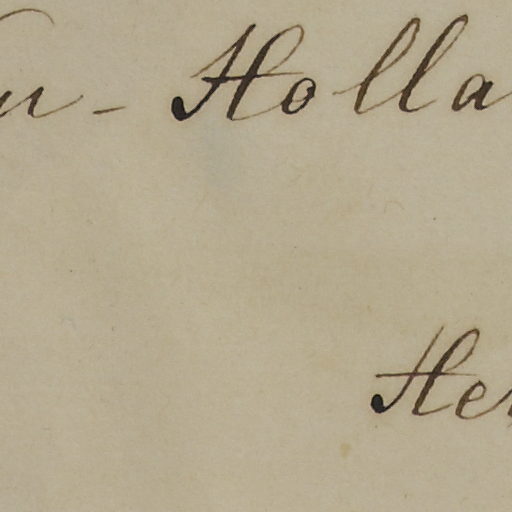 u - Holla
He